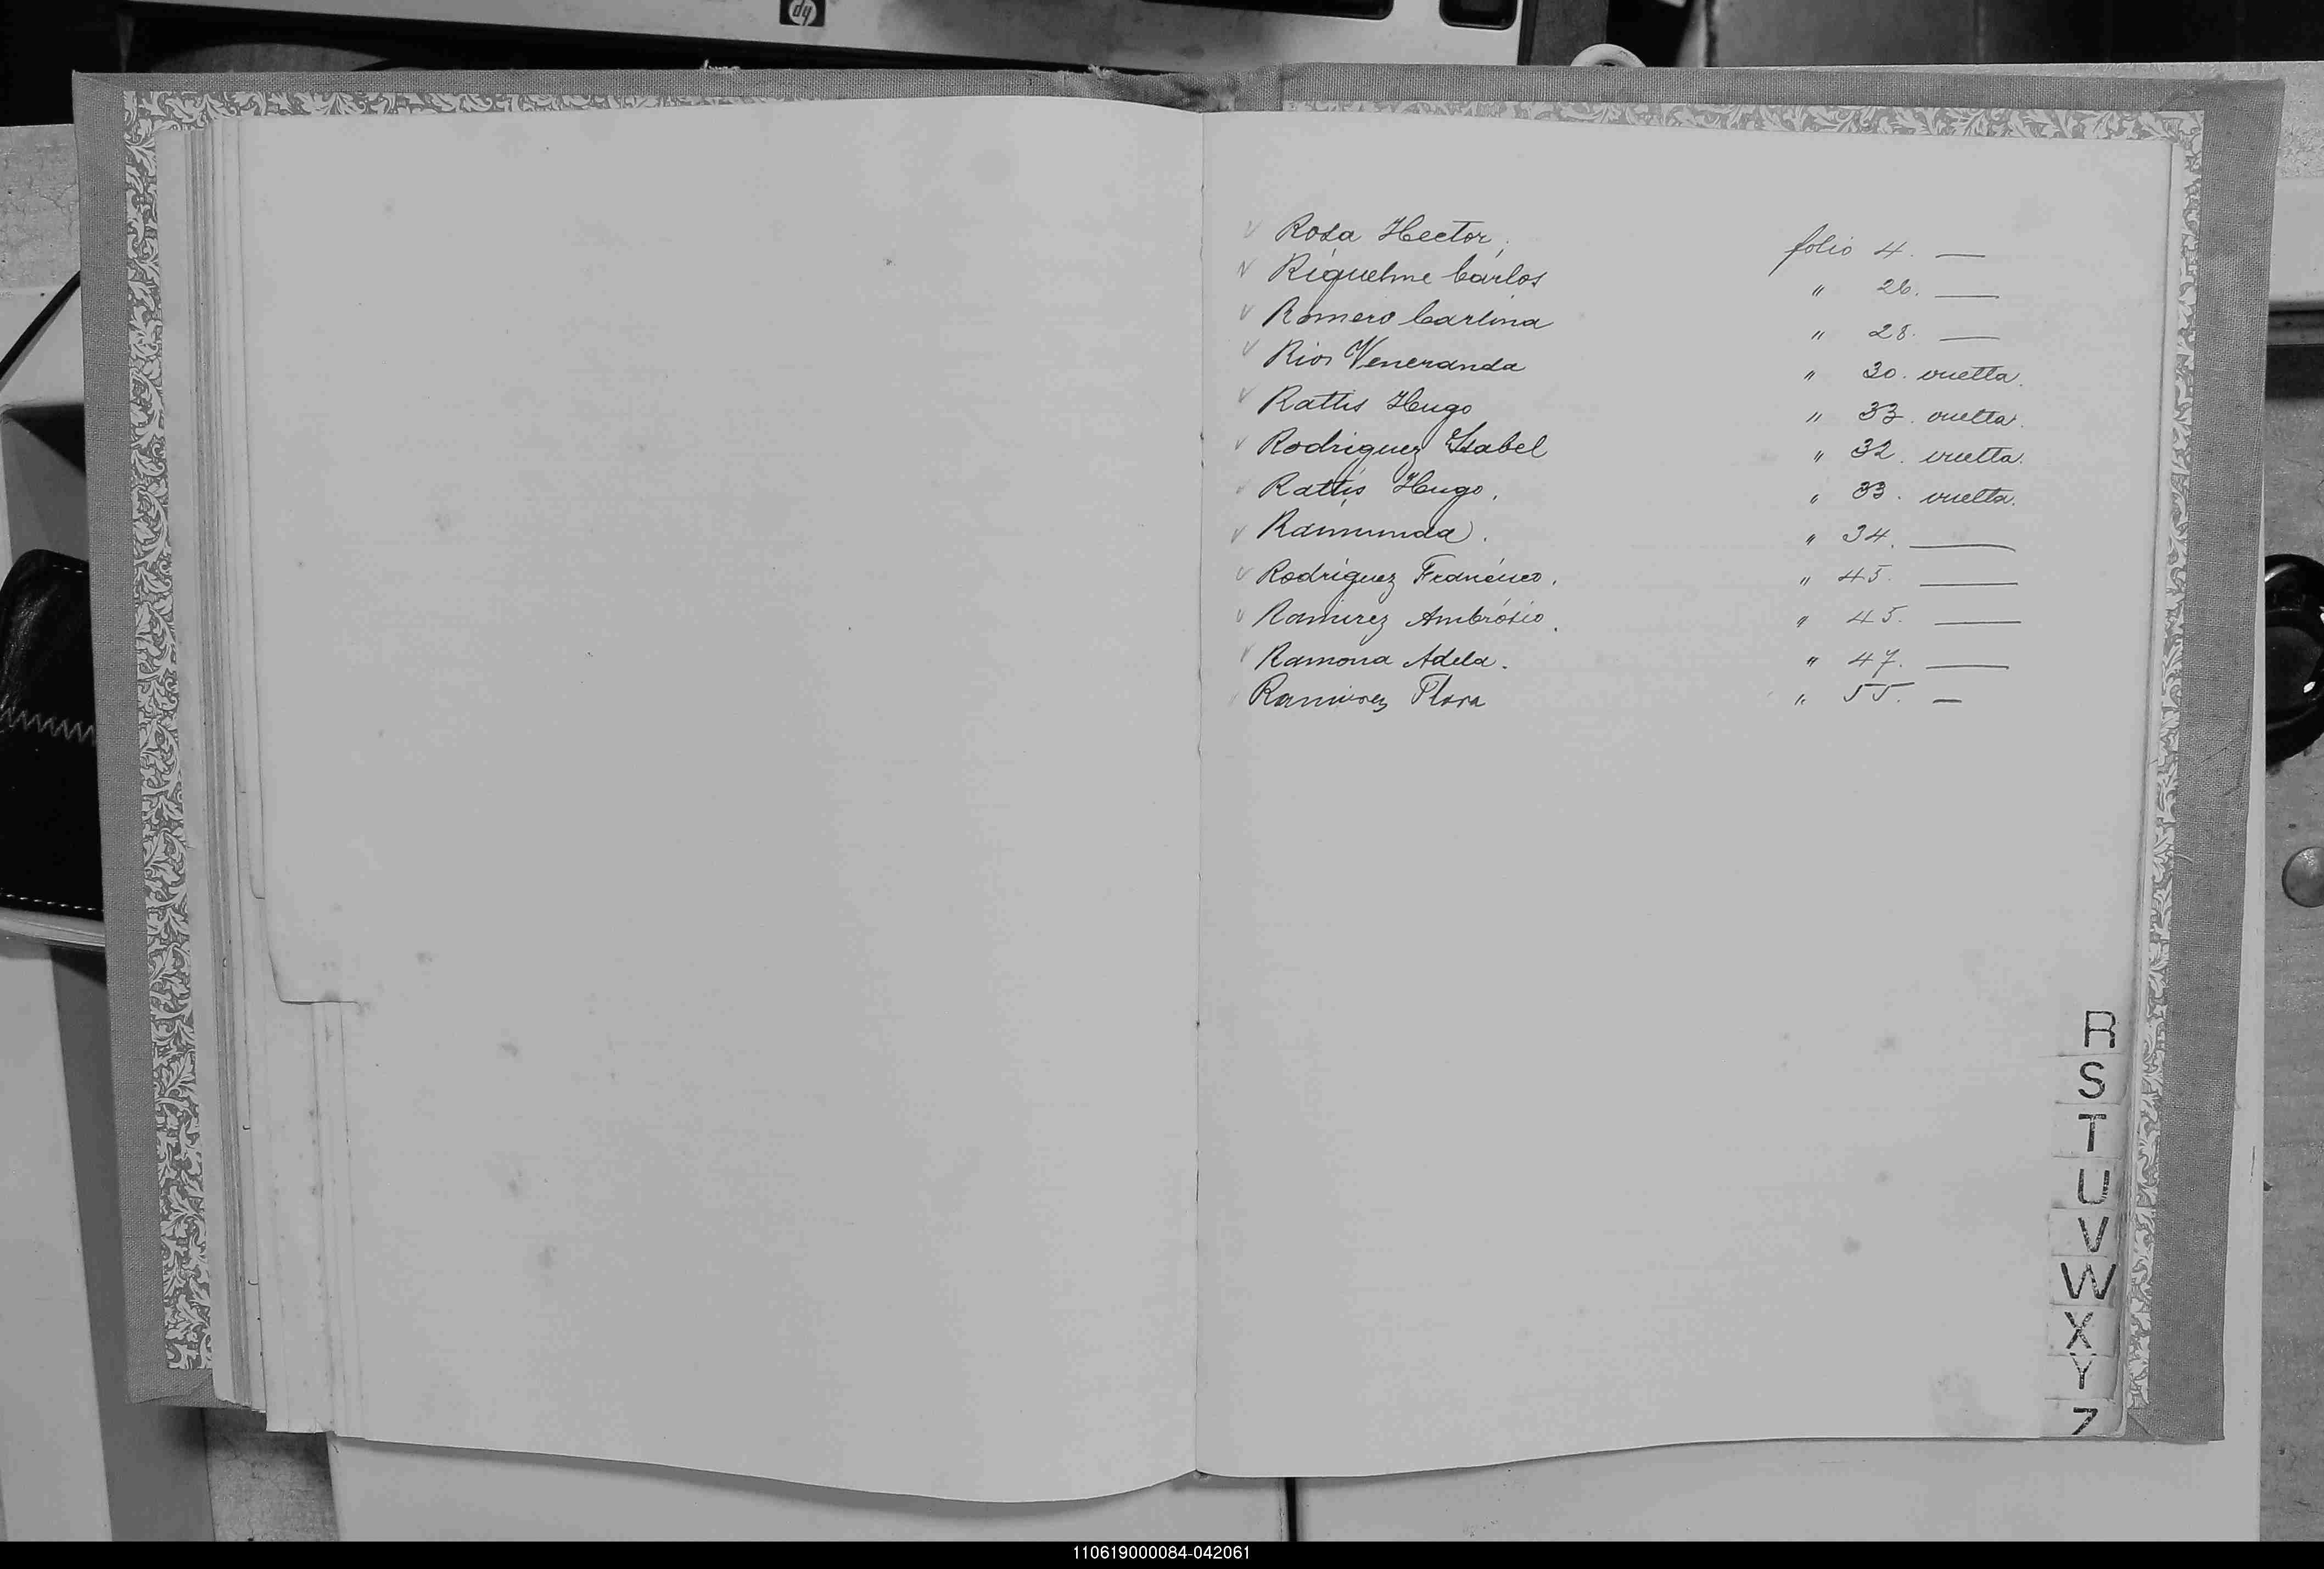 Rosa Hector. folio 4. —
Riquelme Cárlos " 26. —
Romero Carlina " 28. —
Rios Veneranda " 30. vuelta.
Rattis Hugo " 33. vuelta.
Rodriguez Isabel " 32. vuelta.
Rattis Hugo. " 33. vuelta.
Raimunda. " 34. —
Rodriguez Francisco. " 45. —
Ramirez Ambrósio. " 45. —
Ramona Adela. " 47. —
Ramirez Flora " 55. —
R
S
T
U
V
W
X
Y
Z
hp
110619000084-042061